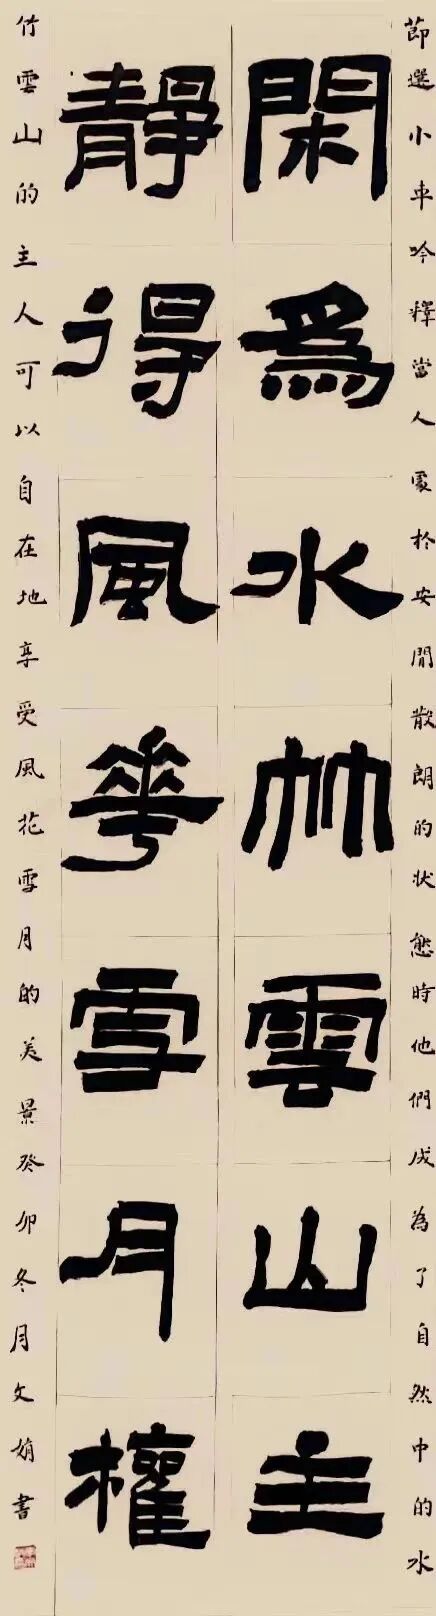 節選小車吟釋當人處於安閒散朗的狀態時他們成為了自然中的水
閑爲水竹雲山主
靜得風華雪月權
竹雲山的主人可以自在地享受風花雪月的美景癸卯冬月文娟書